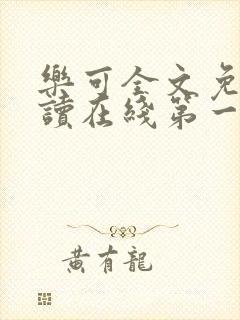 樂可全文免
讀在綫第一
黃有龍